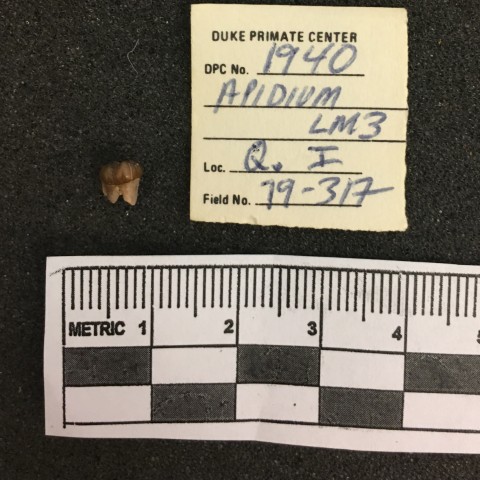 DUKE PRIMATE CENTER
DPC No. 1940
APIDIUM
LM3
Loc. Q. I
Field No. 79-317
METRIC 1 2 3 4 5